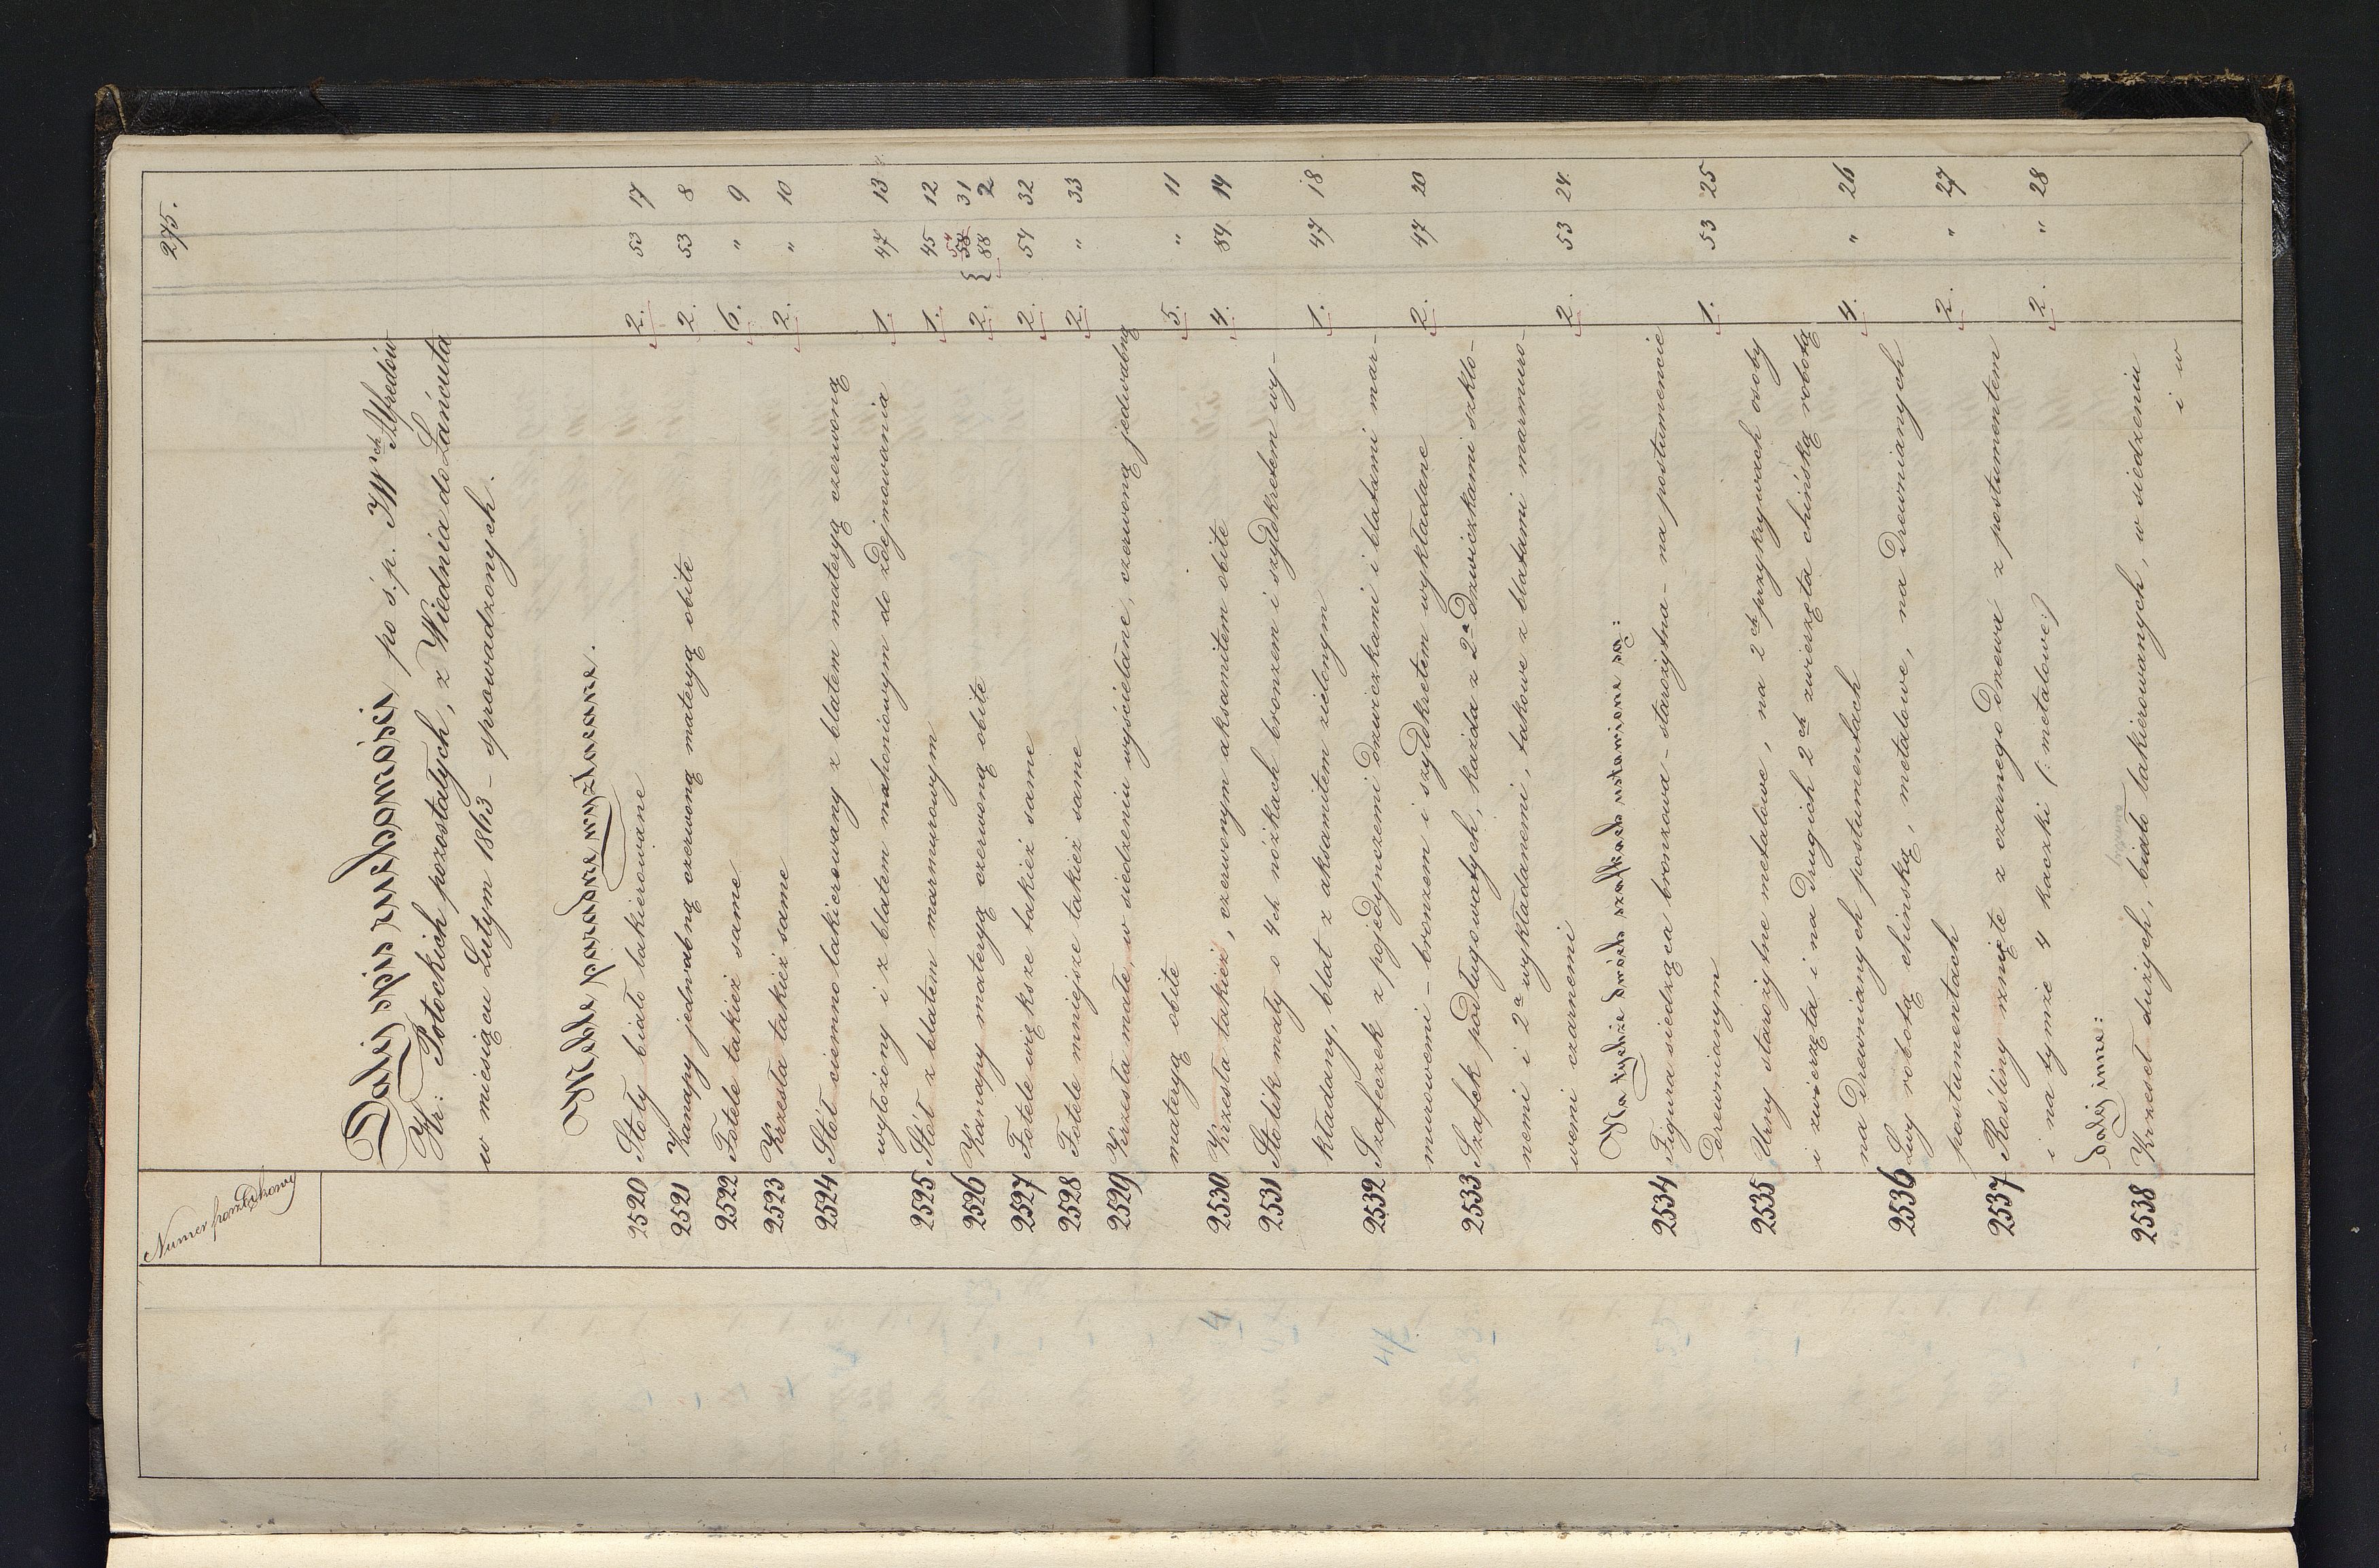 275.
Numer porządkowy
Dalej spis ruchomości, po ś.p. JWch Alfredów
Hr: Potockich pozostałych, z Wiednia do Łańcuta
w miesiącu Lutym 1863 – sprowadzonych.
Meble paradne wyzłacane.
2520 Stoły biało lakierowane 2. 53 17
2521 Kanapy jedwabną czerwoną materyą obite 2. 53 8
2522 Fotele takież same 6. " 9
2523 Krzesła takież same 2. " 10
2524 Stół ciemno lakierowany z blatem materyą czerwoną
wyłożony i z blatem mahoniowym do zdejmowania 1. 47 13
2525 Stół z blatem marmurowym 1. 45 12
2526 Kanapy materyą czerwoną obite 2. { 54 58 31
88 2
2527 Fotele większe takież same 2. 54 32
2528 Fotele mniejsze takież same 2. " 33
2529 Krzesła małe, w siedzeniu wyścielane, czerwoną jedwabną
materyą obite 5. " 11
2530 Krzesła takież, czerwonym aksamitem obite 4. 84 14
2531 Stolik mały o 4ch nóżkach bronzem i szyldkretem wy-
kładany, blat z aksamitem zielonym 1. 47 18
2532 Szafeczek z pojedynczemi drzwiczkami i blatami mar-
murowemi – bronzem i szyldkretem wykładane 2. 47 20
2533 Szafek podługowatych, każda z 2a drzwiczkami szkło-
nemi i 2a wykładanemi, takowe z blatami marmuro-
wemi czarnemi 2. 53 24.
Na tychże dwóch szafkach ustawione są:
2534 Figura siedząca bronzowa – starożytna – na postumencie
drewnianym 1. 53 25
2535 Urny starożytne metalowe, na 2ch przykrywach osoby
i zwierzęta i na drugich 2ch zwierzęta chińską robotą
na drewnianych postumentach 4. " 26
2536 Lwy robotą chinską, metalowe, na drewnianych
postumentach 2. " 27
2537 Rośliny rznięte z czarnego drzewa z postumentem
i na tymże 4 kaczki (: metalowe:) 2. " 28
dalej inne:
2538 Krzeseł dużych, biało lakierowanych, w siedzeniu
i w
4
4